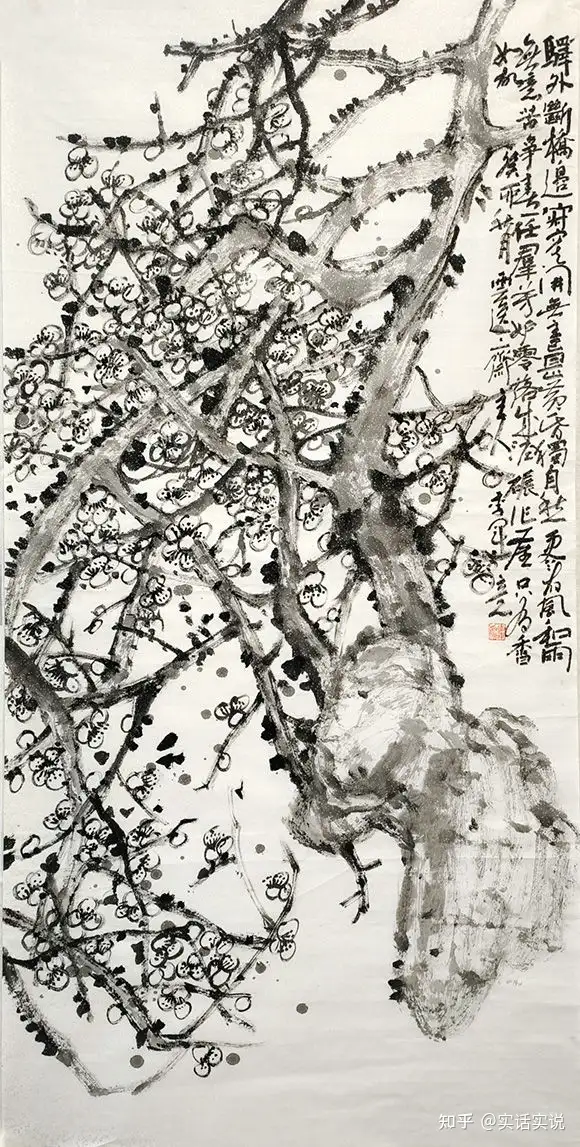 驛外斷橋邊寂寞開無主是黃昏獨自愁更为風和雨
無意苦爭春一任羣芳妒零落成泥碾作塵只有香
如故 癸酉月齋主人
知乎 @实话实说